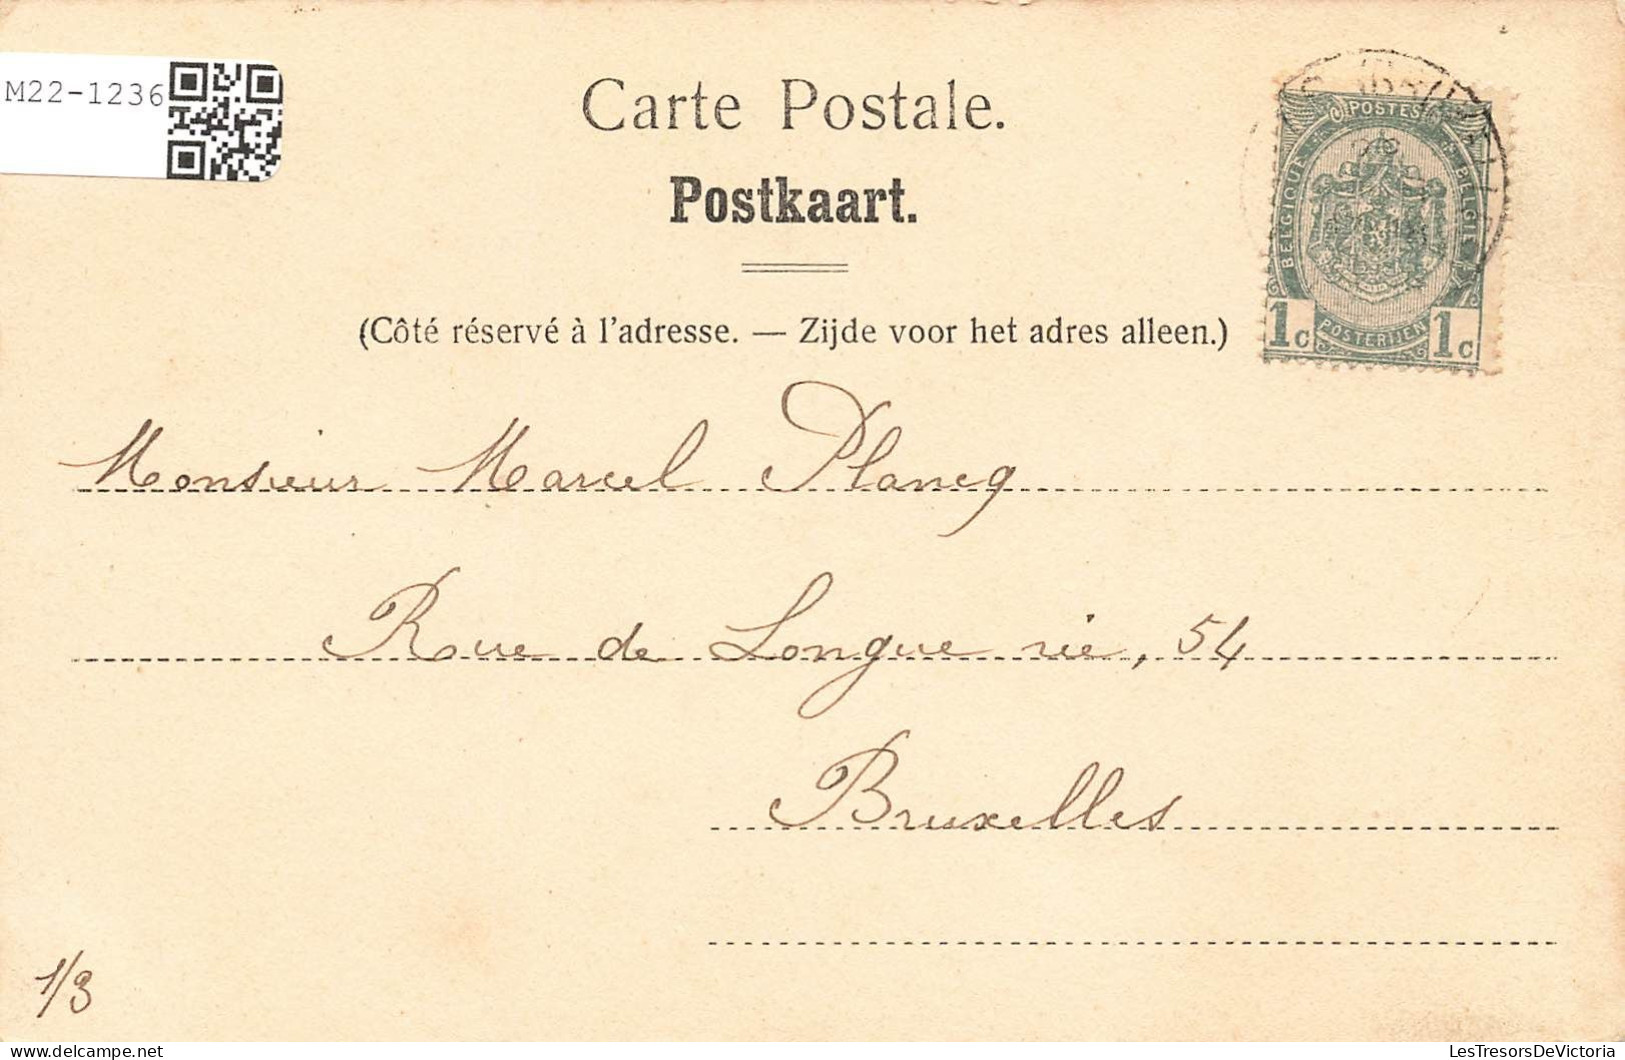 M22-1236
Carte Postale.
Postkaart.
(Côté réservé à l'adresse. — Zijde voor het adres alleen.)
POSTES
BELGIQUE
BELGIE
1c POSTERIJEN 1c
Monsieur Marcel Plancq
Rue de Longue vie, 54
Bruxelles
1/3
LesTresorsDeVictoria